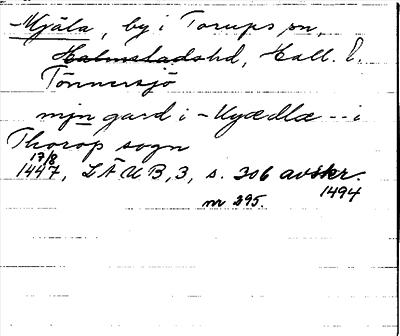 -Mjäla, by i Torups sn,
Halmstadshd, Hall. l.
Tönnersjö
mjn gard i - Uyædlæ -- i
Thorop sogn
17/8
1447, LÄUB, 3, s. 306 avskr.
1494
nr 295.